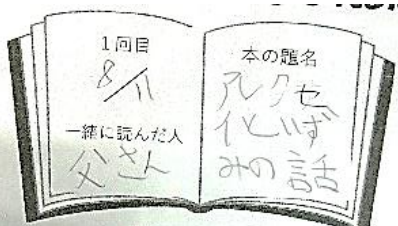 1回目
8/11
一緒に読んだ人
父さん
本の題名
アレクセ
イといず
みの話